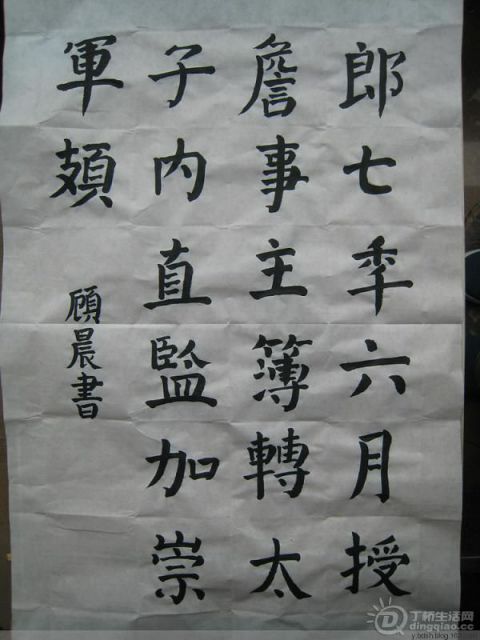 郎七秊六月授
詹事主簿轉太
子内直監加崇
軍頍
顧晨書
丁桥生活网
dingqiao.cc
y.bdsh.blog.163.com